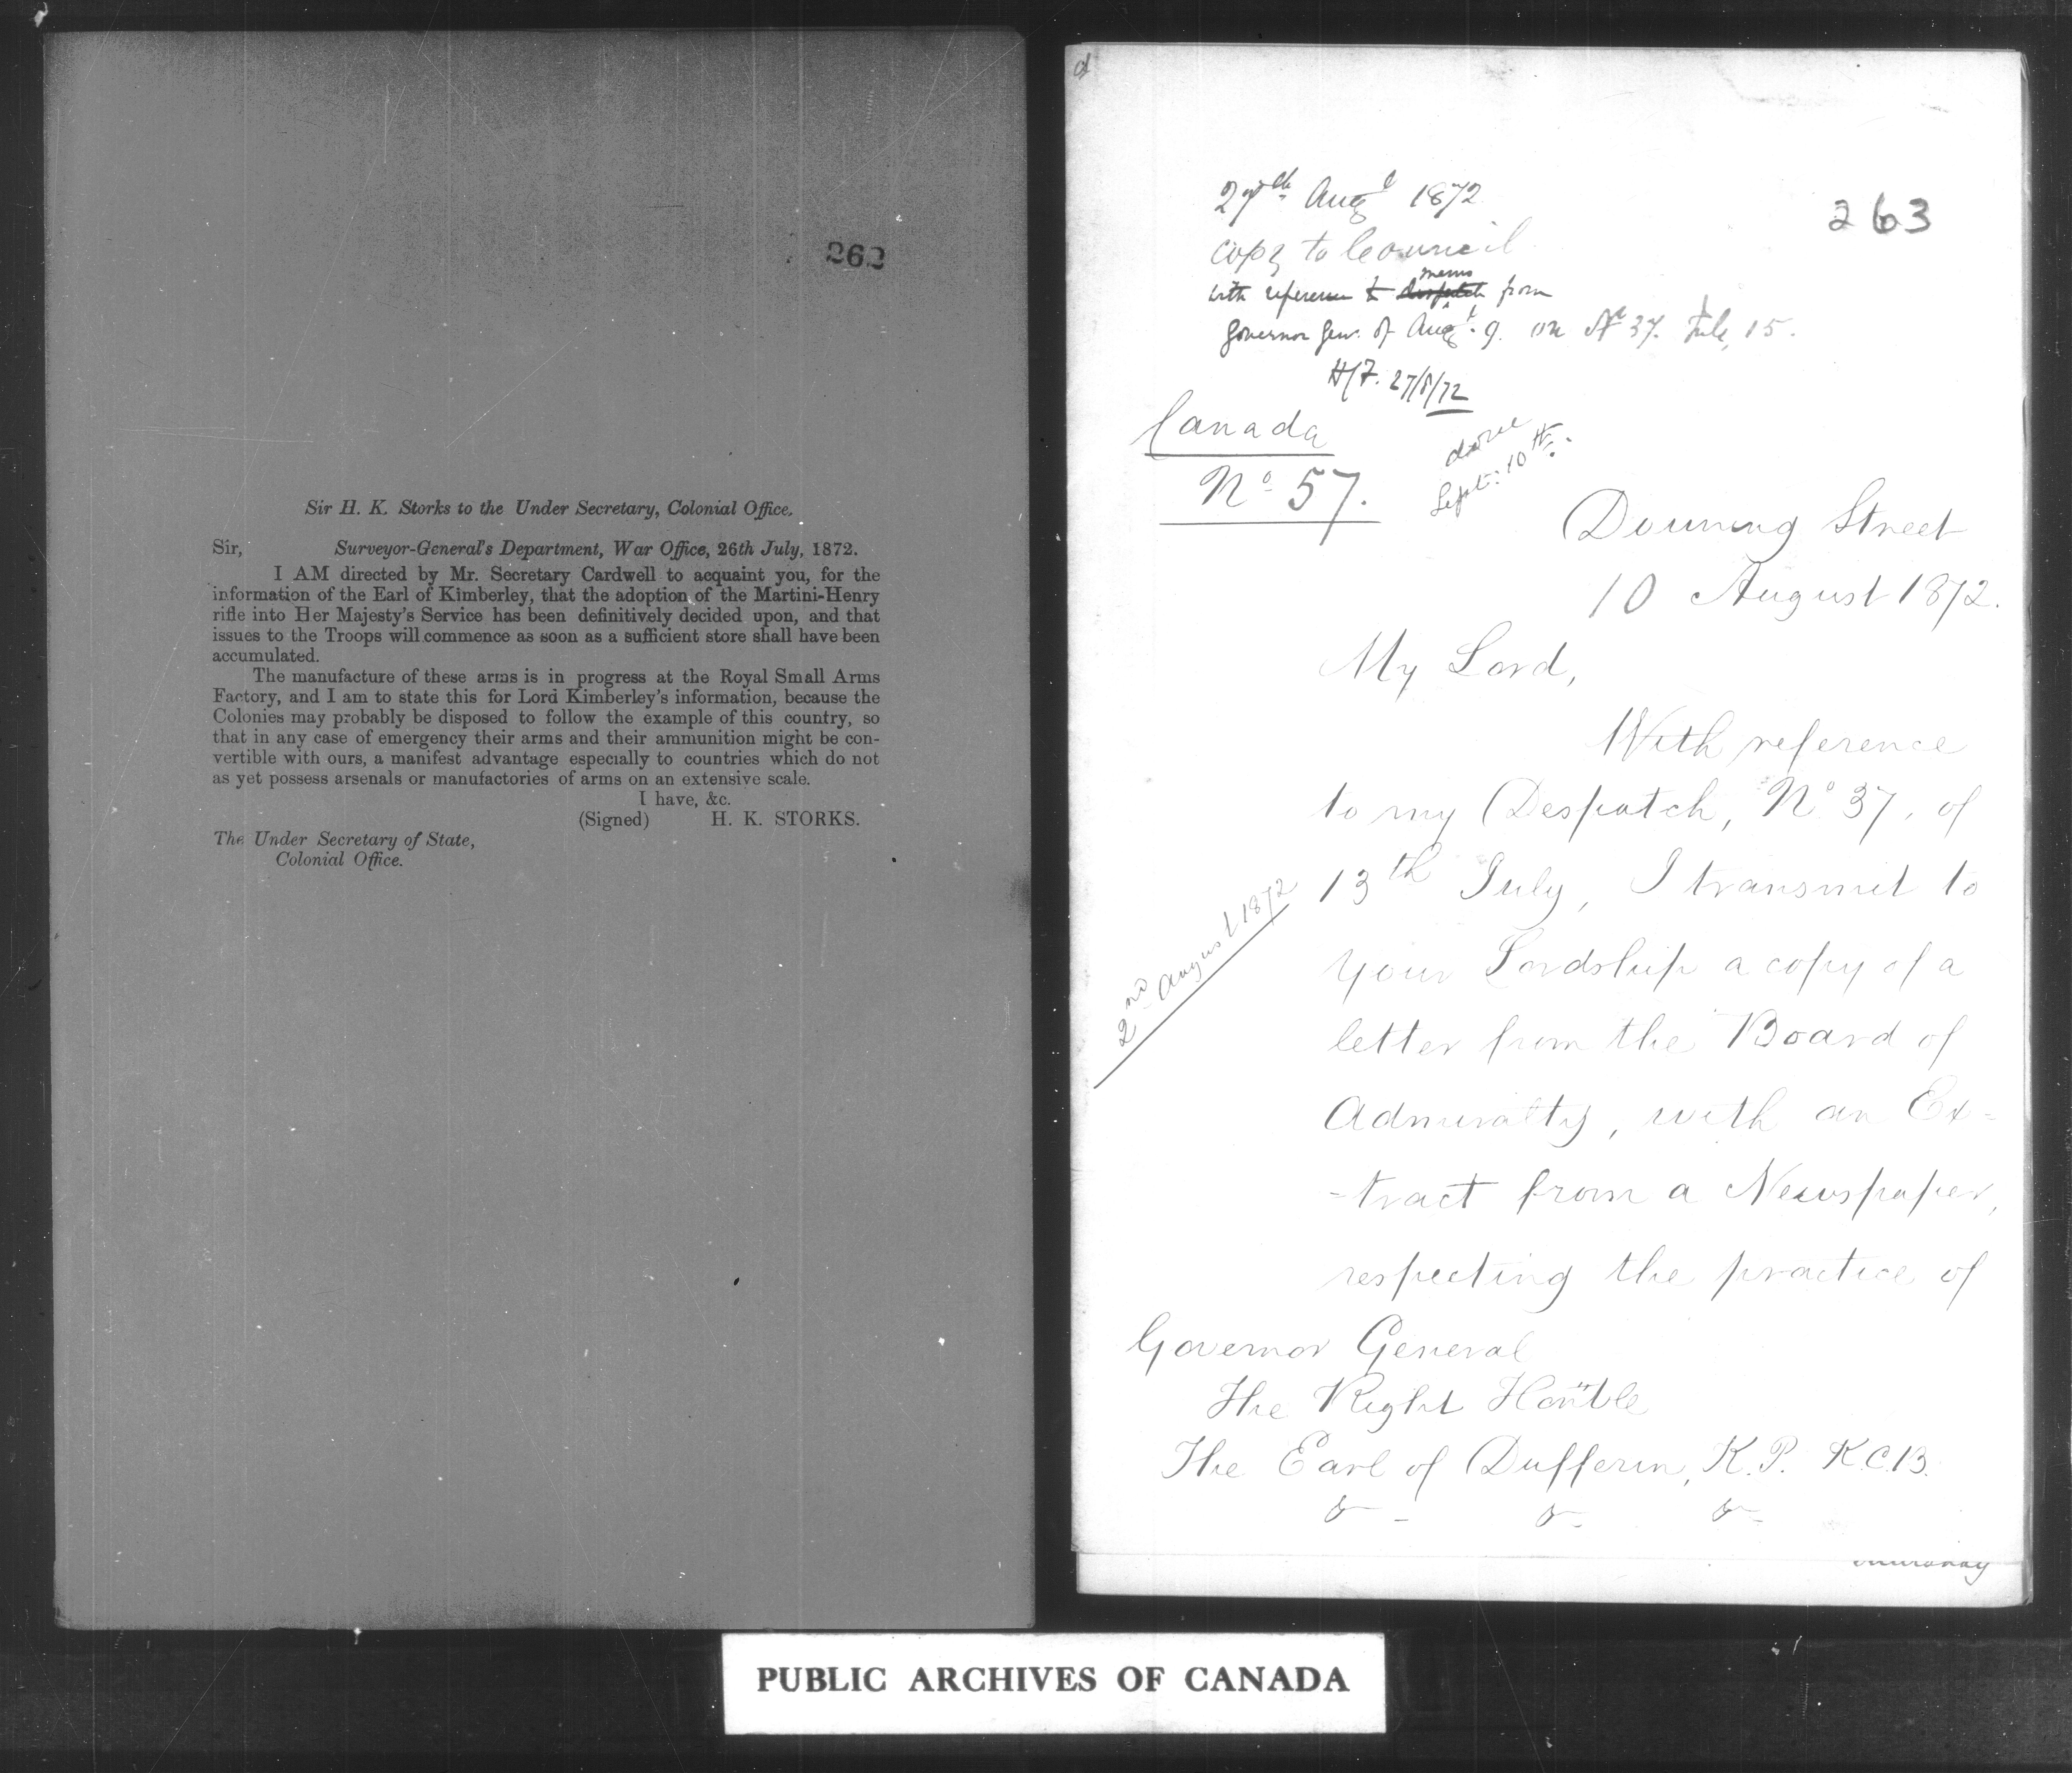 262
Sir H. K. Storks to the Under Secretary, Colonial Office.
Sir, Surveyor-General's Department, War Office, 26th July, 1872.
I AM directed by Mr. Secretary Cardwell to acquaint you, for the
information of the Earl of Kimberley, that the adoption of the Martini-Henry
rifle into Her Majesty's Service has been definitively decided upon, and that
issues to the Troops will commence as soon as a sufficient store shall have been
accumulated.
The manufacture of these arms is in progress at the Royal Small Arms
Factory, and I am to state this for Lord Kimberley's information, because the
Colonies may probably be disposed to follow the example of this country, so
that in any case of emergency their arms and their ammunition might be con-
vertible with ours, a manifest advantage especially to countries which do not
as yet possess arsenals or manufactories of arms on an extensive scale.
I have, &c.
(Signed) H. K. STORKS.
The Under Secretary of State,
Colonial Office.
263
27th Augt 1872
copy to Council
memo
with reference to despatch from
Governor Gen. of Augt. 9. on No 37. July 15.
27/8/72
Canada
No 57.
done
Sept: 10th.
Downing Street
10 August 1872.
My Lord,
With reference
to my Despatch, No 37, of
13th July, I transmit to
2nd August 1872
your Lordship a copy of a
letter from the Board of
Admiralty, with an Ex-
-tract from a Newspaper,
respecting the practice of
Governor General
The Right Honble
The Earl of Dufferin, K.P. K.C.B.
& & &
PUBLIC ARCHIVES OF CANADA